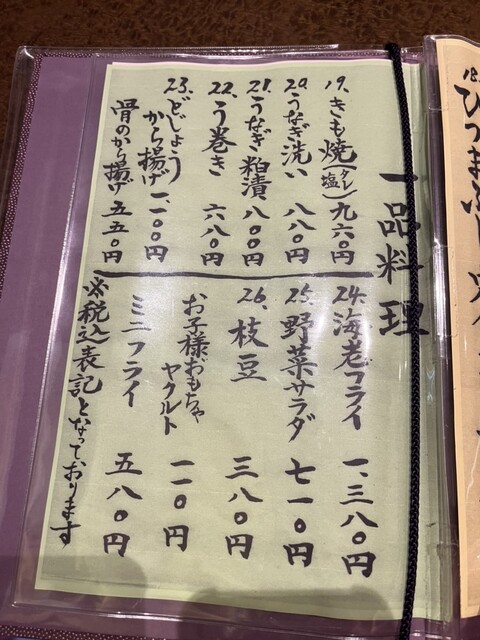 一品料理
19. きも焼(タレ 塩) 九六〇円
20. うなぎ洗い 八八〇円
21. うなぎ粕漬 八〇〇円
22. う巻き 六八〇円
23. どじょう
から揚げ 一、一〇〇円
骨のから揚げ 五五〇円
24. 海老フライ 一、三八〇円
25. 野菜サラダ 七一〇円
26. 枝豆 三八〇円
お子様おもちゃ
ヤクルト 一一〇円
ミニフライ 五八〇円
※税込表記となっております
18.
ひつまぶし